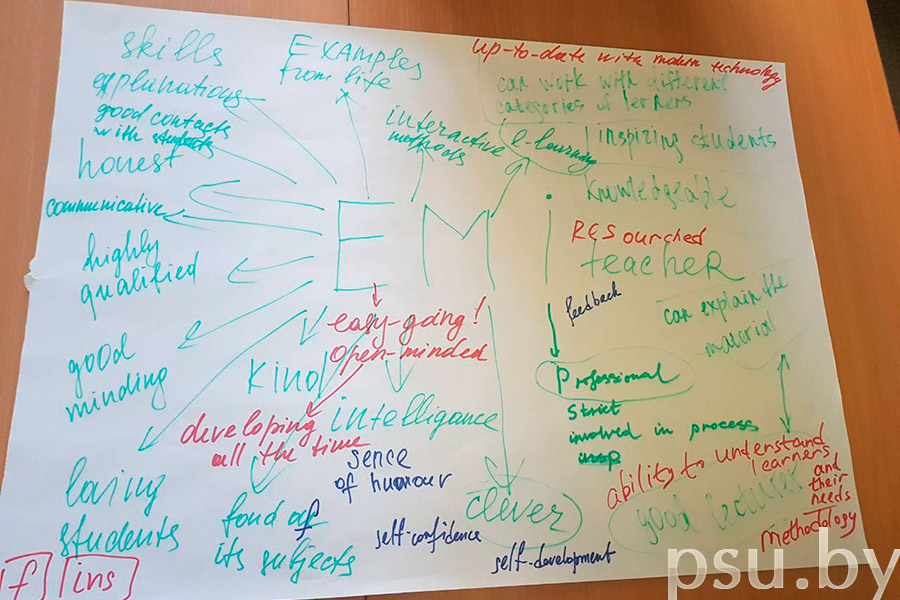 skills
explanations
good contacts
with students
honest
communicative
highly
qualified
good
minding
loving
students
Examples
from life
interactive
methods
e-learning
up-to-date with modern technology
can work with different
categories of lerners
inspiring students
knowledgeable
EMI
RESourched
teacheR
feedback
can explain the
material
easy-going!
open-minded
Kind
developing
all the time
intelligance
sence
of humour
fond of
its subjects
self-confidence
clever
self-development
Professional
strict
involved in process
ability to understand
learners
and
their
needs
good lecturer
methodology
f
ins
psu.by